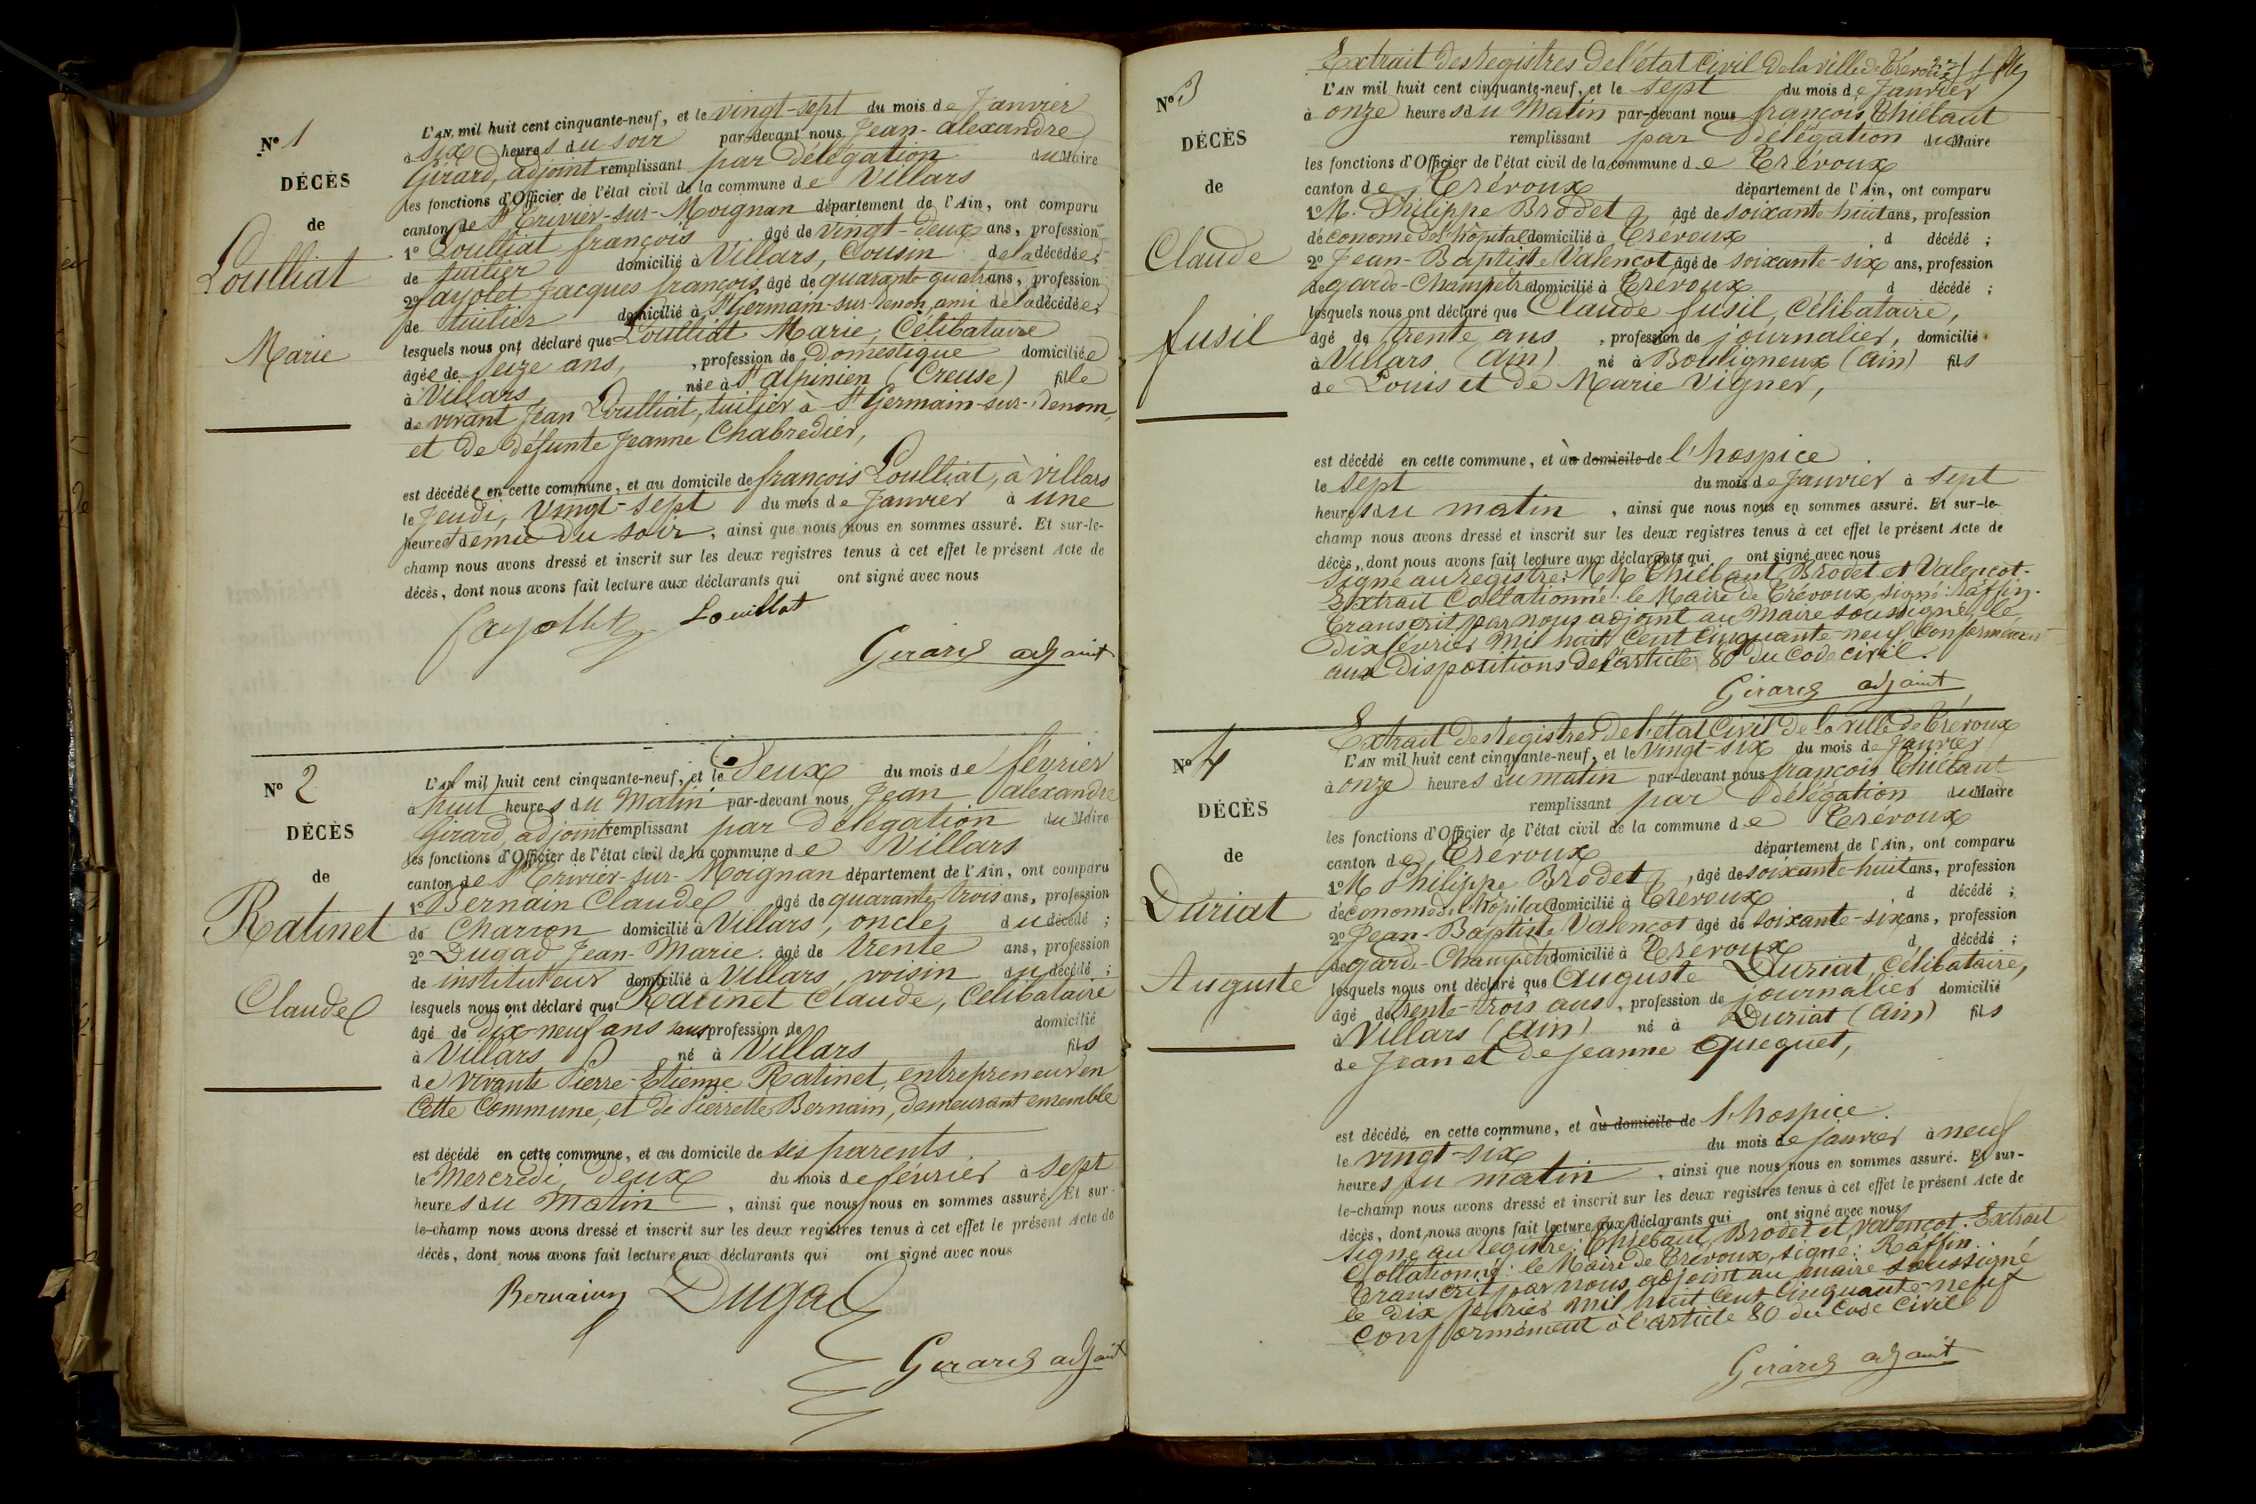 N° 1
DÉCÈS
de
Loulliat
Marie
L'AN mil huit cent cinquante-neuf, et le vingt-sept du mois de Janvier
à six heures du soir par-devant nous Jean-alexandre
Girard, adjoint remplissant par Délégation du Maire
les fonctions d'Officier de l'état civil de la commune de Villars
canton de St Trivier-sur-Moignan département de l'Ain, ont comparu
1° Loulliat françois âgé de vingt-deux ans, profession
de tuilier domicilié à Villars, Cousin de la décédée;
2° fayolet Jacques françois âgé de quarante quatre ans, profession
de tuilier domicilié à St Germain-sur-renon, ami de la décédée;
lesquels nous ont déclaré que Loulliat Marie, Célibataire
âgée de seize ans, , profession de Domestique domiciliée
à Villars née à St alpinien (Creuse) fille
de vivant Jean Loulliat, tuilier à St Germain-sur-Renom,
et de défunte Jeanne Chabredier,
est décédée en cette commune, et au domicile de françois Loulliat, à villars
le Jeudi, vingt-sept du mois de Janvier à une
heure et demie du soir, ainsi que nous nous en sommes assuré. Et sur-le-
champ nous avons dressé et inscrit sur les deux registres tenus à cet effet le présent Acte de
décès, dont nous avons fait lecture aux déclarants qui ont signé avec nous
fayollet Louillat
Girard adjoint
N° 2
DÉCÈS
de
Ratinet
Claude
L'AN mil huit cent cinquante-neuf, et le Deux du mois de février
à huit heures du Matin par-devant nous Jean alexandre
Girard, adjoint remplissant par Délégation du Maire
les fonctions d'Officier de l'état civil de la commune de Villars
canton de St Trivier-sur-Moignan département de l'Ain, ont comparu
1° Bernain Claude âgé de quarante trois ans, profession
de Charron domicilié à Villars, oncle du décédé ;
2° Dugad Jean-Marie âgé de trente ans, profession
de instituteur domicilié à Villars, voisin du décédé ;
lesquels nous ont déclaré que Ratinet Claude, Célibataire
âgé de dix-neuf ans sans profession de domicilié
à Villars né à Villars fils
de vivants Pierre-Etienne Ratinet, entrepreneur en
Cette Commune, et de Pierrette Bernain, demeurant ensemble
est décédé en cette commune, et au domicile de ses parents
le Mercredi, deux du mois de février à sept
heures du Matin, ainsi que nous nous en sommes assuré. Et sur-
le-champ nous avons dressé et inscrit sur les deux registres tenus à cet effet le présent Acte de
décès, dont nous avons fait lecture aux déclarants qui ont signé avec nous
Bernain Dugad
Girard adjoint
Extrait des Registres de l'état Civil de la ville de Trévoux
N° 3
DÉCÈS
de
Claude
fusil
L'AN mil huit cent cinquante-neuf, et le sept du mois de Janvier
à onze heures du Matin par-devant nous françois Thiébaut
remplissant par Délégation du Maire
les fonctions d'Officier de l'état civil de la commune de Trévoux
canton de Trévoux département de l'Ain, ont comparu
1° M. Philippe Brodet âgé de soixante huit ans, profession
d'économe de l'hôpital domicilié à Trévoux d décédé ;
2° Jean-Baptiste Valençot âgé de soixante-six ans, profession
de garde-Champêtre domicilié à Trévoux d décédé ;
lesquels nous ont déclaré que Claude fusil, Célibataire,
âgé de trente ans , profession de journalier, domicilié
à Villars (Ain) né à Bouligneux (Ain) fils
de Louis et de Marie Vigner,
est décédé en cette commune, et à au domicile de l'hospice
le sept du mois de Janvier à sept
heures du matin , ainsi que nous nous en sommes assuré. Et sur-le-
champ nous avons dressé et inscrit sur les deux registres tenus à cet effet le présent Acte de
décès, dont nous avons fait lecture aux déclarants qui ont signé avec nous
Signé au registre: MM Thiébaut, Brodet et Valençot.
Extrait Collationné: le Maire de Trévoux, signé: Raffin.
Transcrit par nous adjoint au Maire soussigné, le
dix février mil huit Cent Cinquante-neuf Conformément
aux Dispositions de l'article 80 du Code civil.
Girard adjoint
Extrait des Registres de l'état Civil de la ville de Trévoux
N° 4
DÉCÈS
de
Duriat
Auguste
L'AN mil huit cent cinquante-neuf, et le vingt-six du mois de Janvier
à onze heures du matin par-devant nous françois Thiébaut
remplissant par Délégation du Maire
les fonctions d'Officier de l'état civil de la commune de Trévoux
canton de Trévoux département de l'Ain, ont comparu
1° M Philippe Brodet, âgé de soixante-huit ans, profession
d'économe de l'hôpital domicilié à Trévoux d décédé ;
2° Jean-Baptiste Valençot âgé de soixante-six ans, profession
de garde-Champêtre domicilié à Trévoux d décédé ;
lesquels nous ont déclaré que Auguste Duriat, Célibataire,
âgé de trente-trois ans, profession de journalier domicilié
à Villars (Ain) né à Duriat (Ain) fils
de Jean et de Jeanne Queguet,
est décédé en cette commune, et à au domicile de l'hospice.
le vingt-six du mois de janvier à neuf
heures du matin , ainsi que nous nous en sommes assuré. Et sur-
le-champ nous avons dressé et inscrit sur les deux registres tenus à cet effet le présent Acte de
décès, dont nous avons fait lecture aux déclarants qui ont signé avec nous
Signé au registre: Thiébaut, Brodet et Valençot. Extrait
Collationné: le Maire de Trévoux, signé: Raffin.
Transcrit par nous adjoint au maire soussigné
le dix février mil huit Cent Cinquante-neuf
Conformément à l'article 80 du Code Civil
Girard adjoint